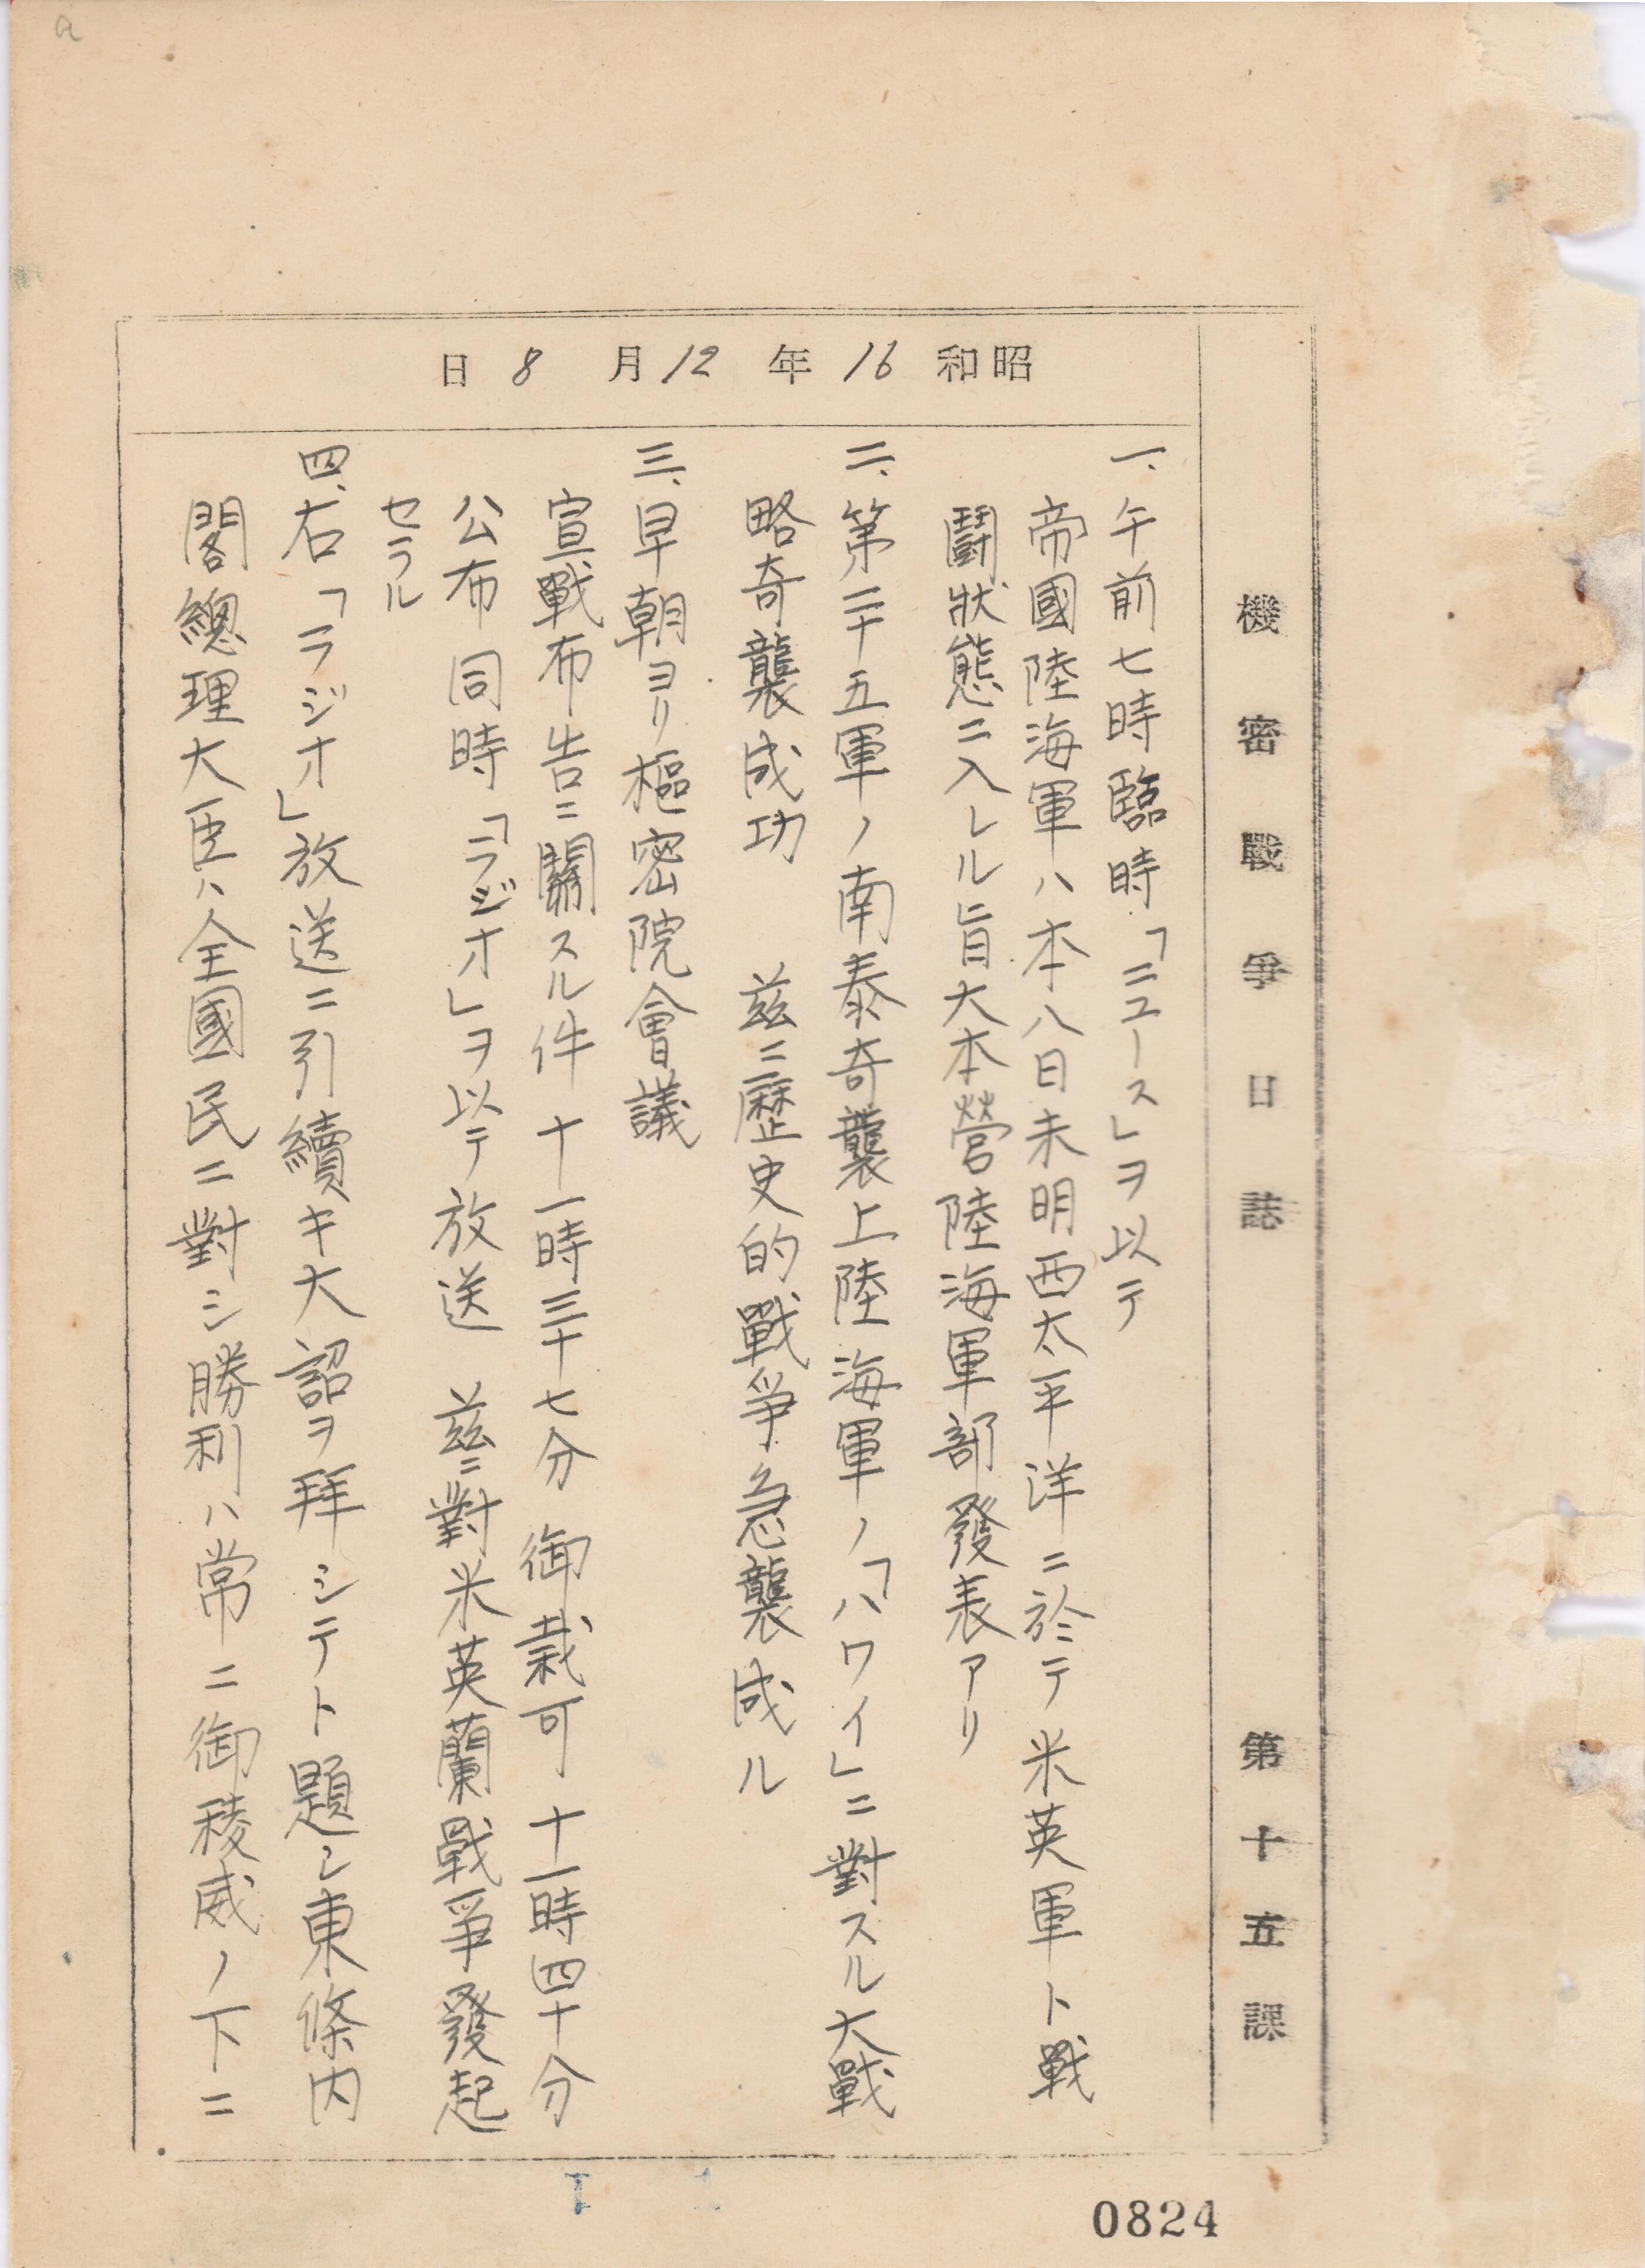 機密戰爭日誌 第十五課
昭和16年12月8日
一、午前七時臨時「ニユース」ヲ以テ
帝國陸海軍ハ本八日未明西太平洋ニ於テ米英軍ト戰
鬪狀態ニ入レル旨大本營陸海軍部發表アリ
二、第二十五軍ノ南泰奇襲上陸海軍ノ「ハワイ」ニ對スル大戰
略奇襲成功 茲ニ歷史的戰爭急襲成ル
三、早朝ヨリ樞密院會議
宣戰布告ニ關スル件 十一時三十七分 御裁可 十一時四十分
公布同時「ラジオ」ヲ以テ放送 茲ニ對米英蘭戰爭發起
セラル
四、右「ラジオ」放送ニ引續キ大詔ヲ拜シテト題シ東條内
閣總理大臣ハ全國民ニ對シ勝利ハ常ニ御稜威ノ下ニ
0824